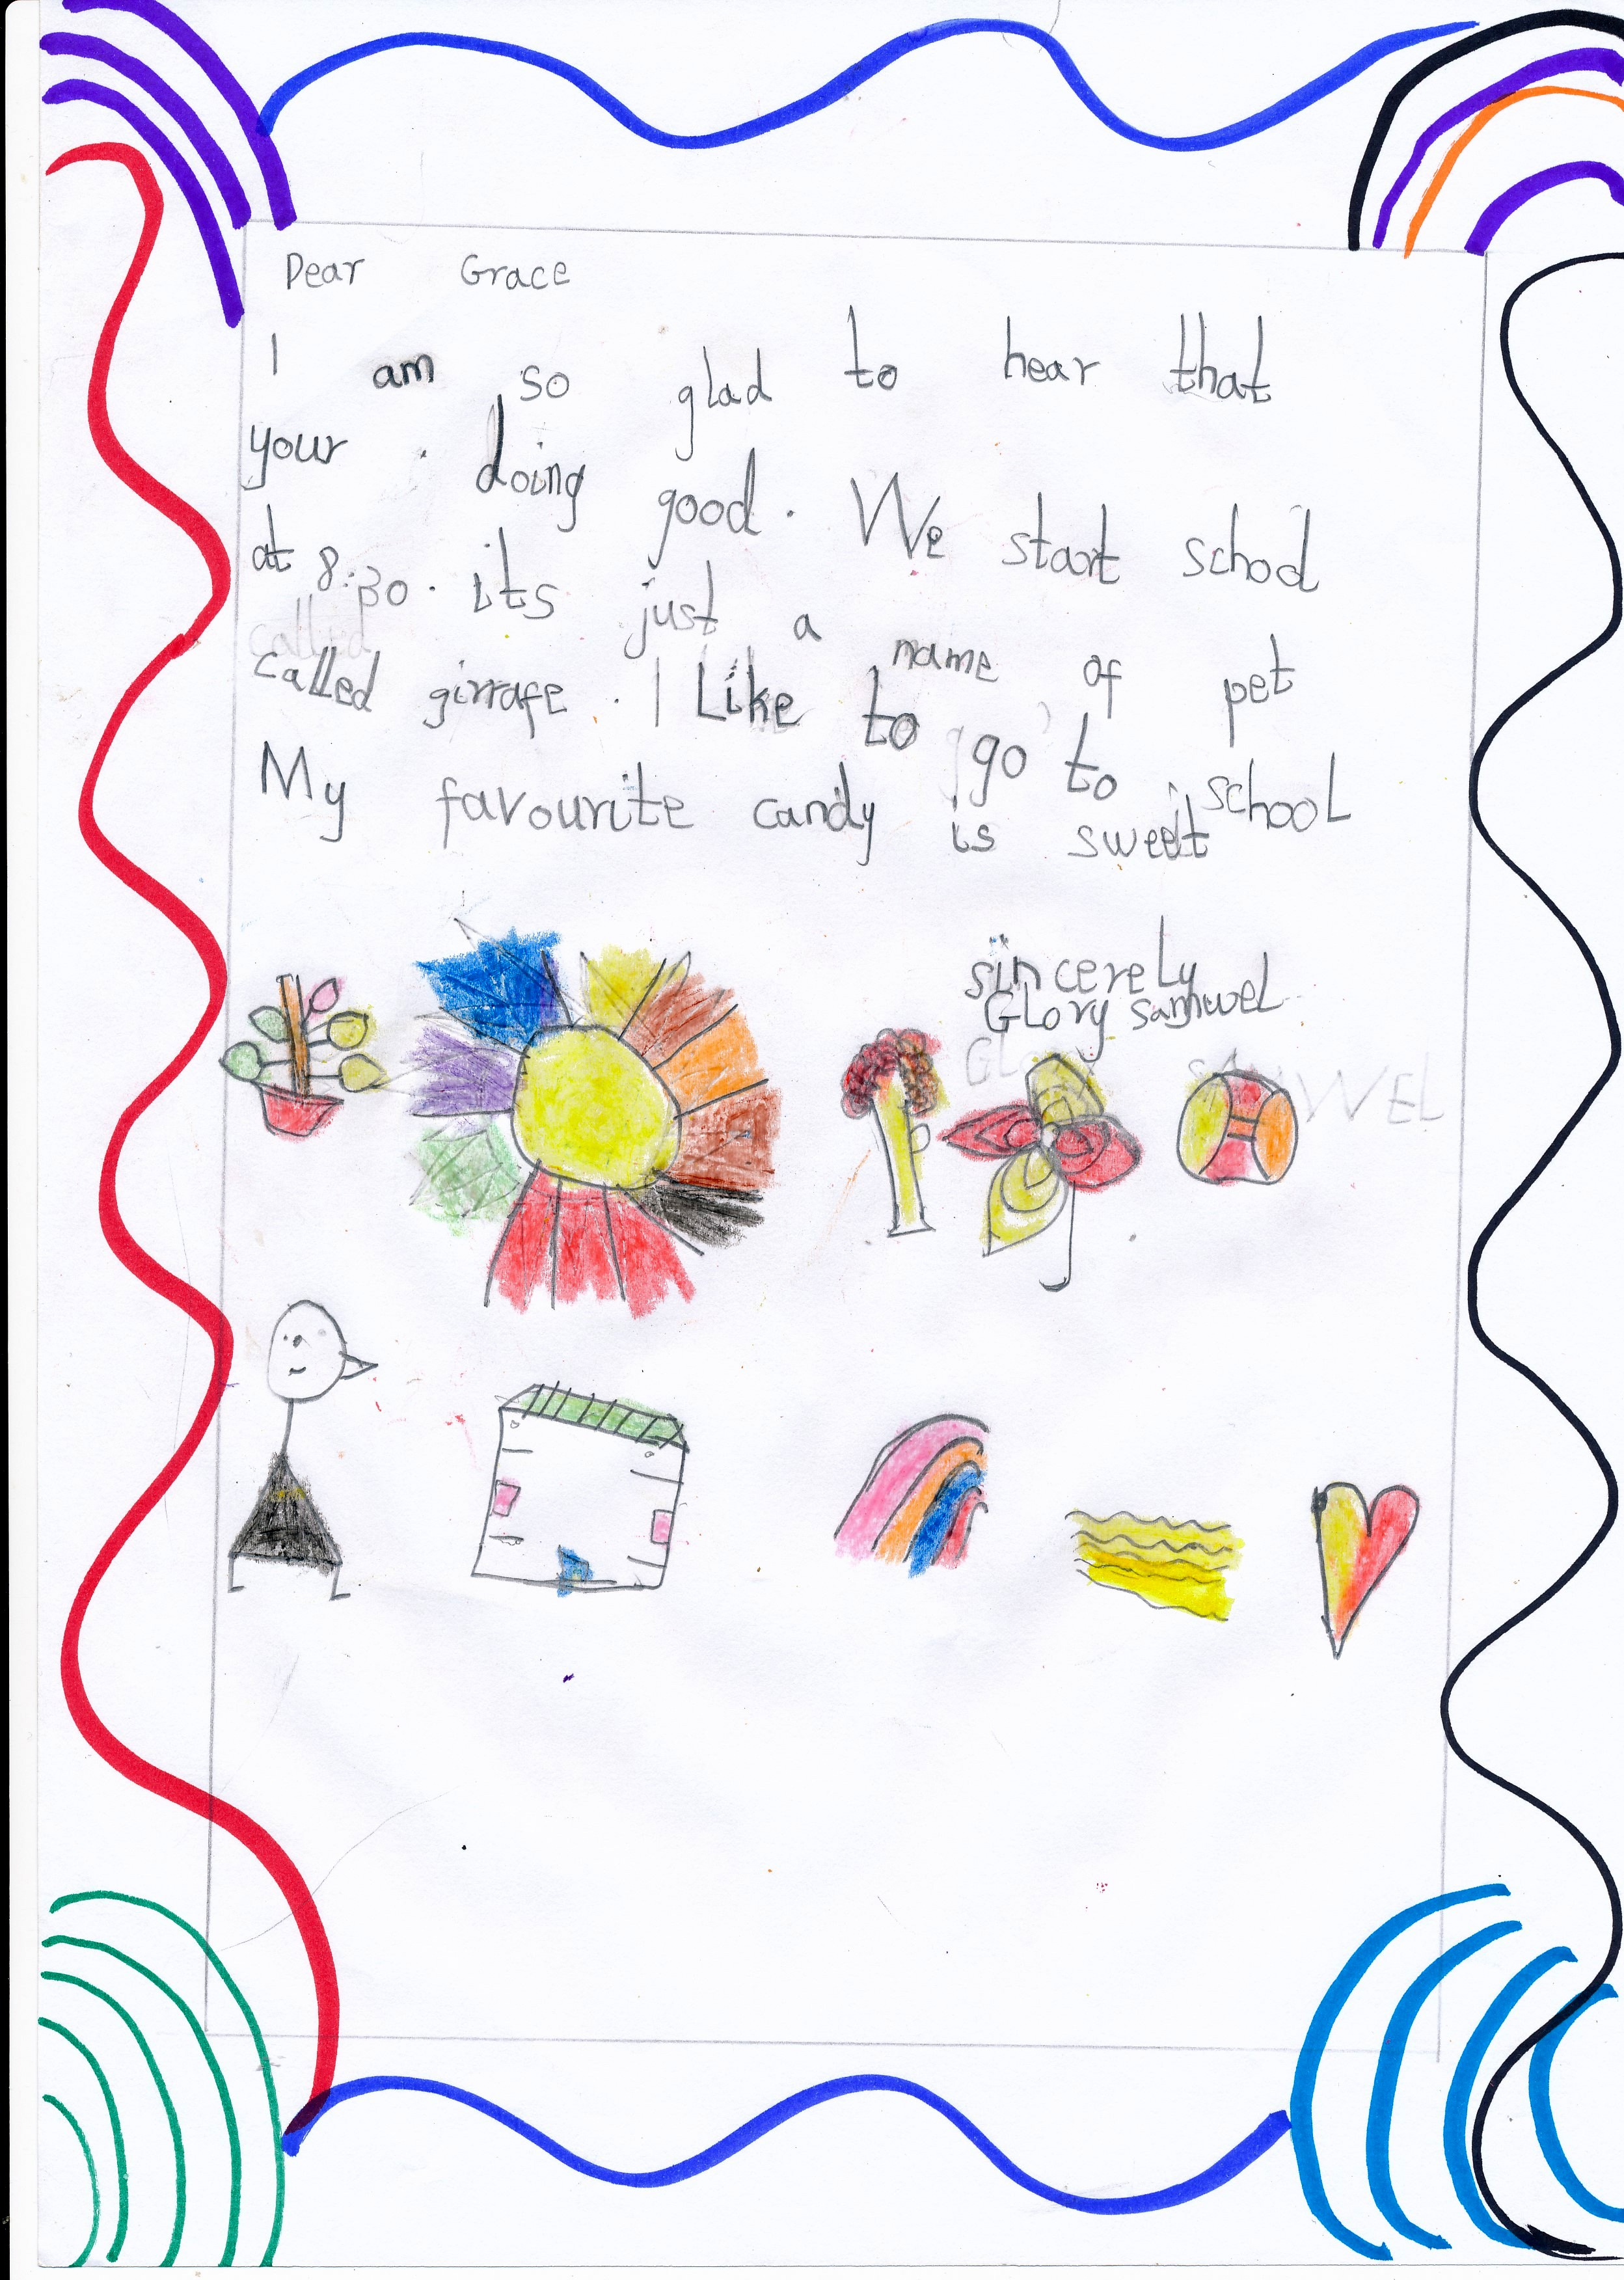 Dear Grace
I am so glad to hear that
your doing good. We start school
at 8:30. its just a name of pet
called girrafe. I Like to go to school
My favourite candy is sweet
sincerely
Glory Samwel